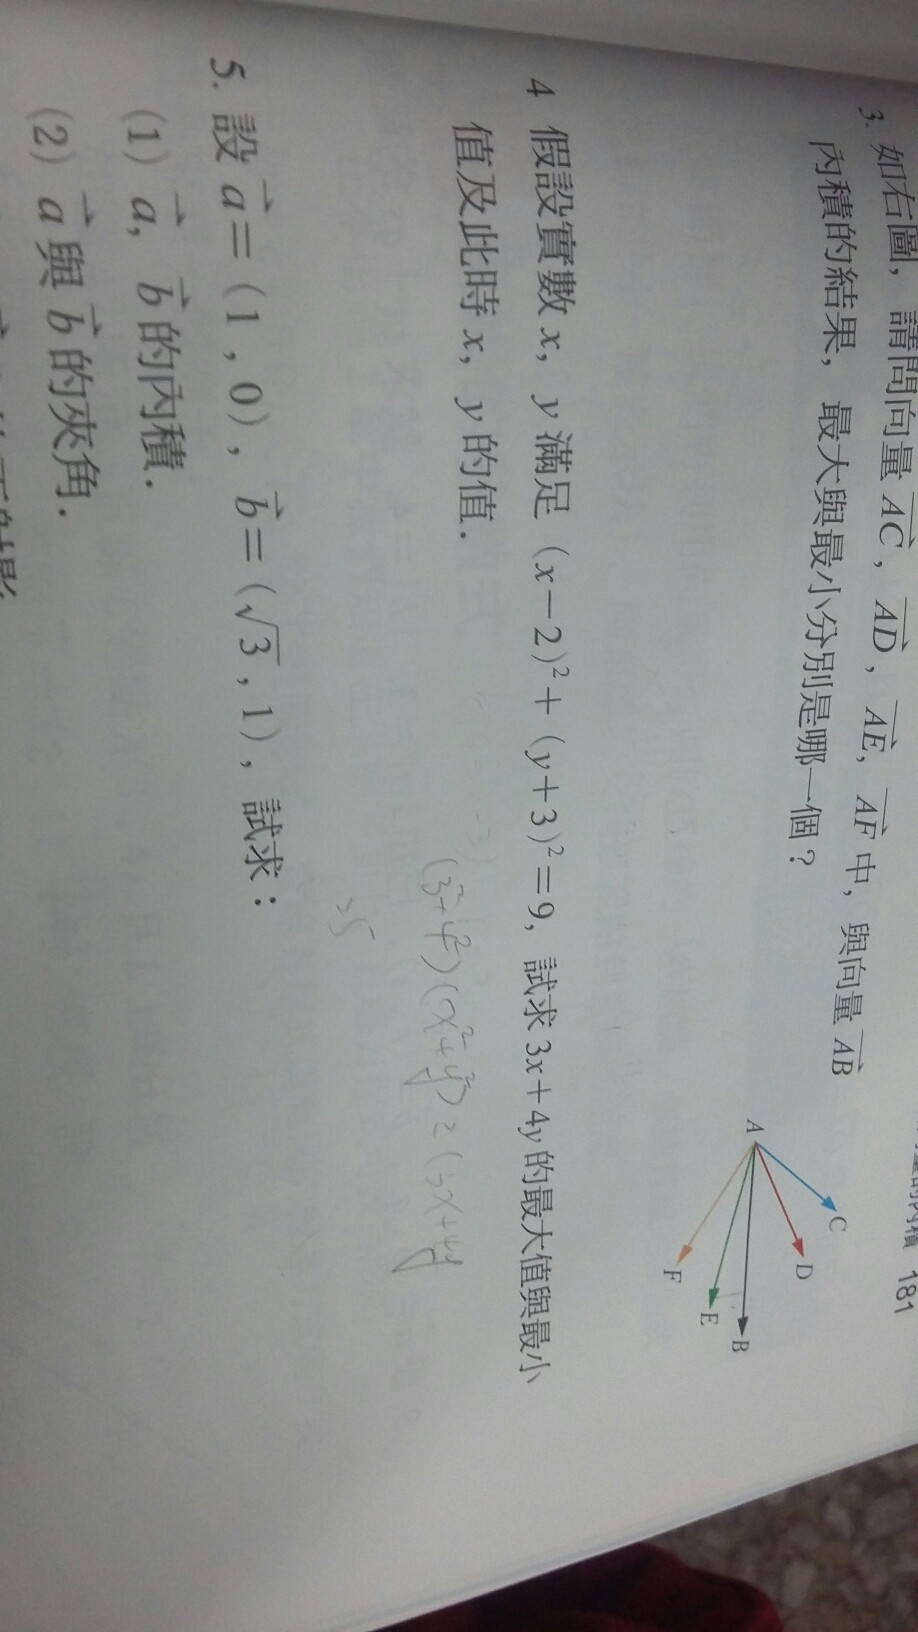 181
3. 如右圖，請問向量 AC，AD，AE，AF 中，與向量 AB
內積的結果，最大與最小分別是哪一個？
A
B
C
D
E
F
4 假設實數 x，y 滿足 (x－2)²＋(y＋3)²＝9，試求 3x＋4y 的最大值與最小
值及此時 x，y 的值．
(3²+4²)(x²+y²)≥(3x+4y
5. 設 a＝(1，0)，b＝(√3，1)，試求：
(1) a，b 的內積．
(2) a 與 b 的夾角．